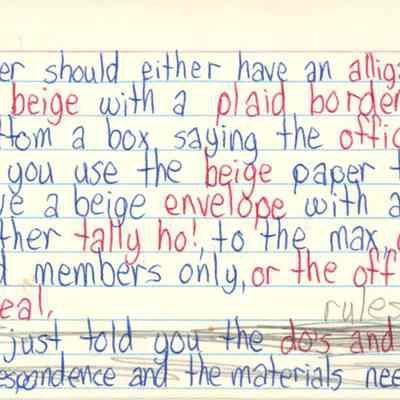 er should either have an allig
beige with a plaid border
ttom a box saying the offic
you use the beige paper t
ve a beige envelope with a
ther tally ho!, to the max,
d members only, or the off
eal.
rules
just told you the do's and
espondence and the materials nee